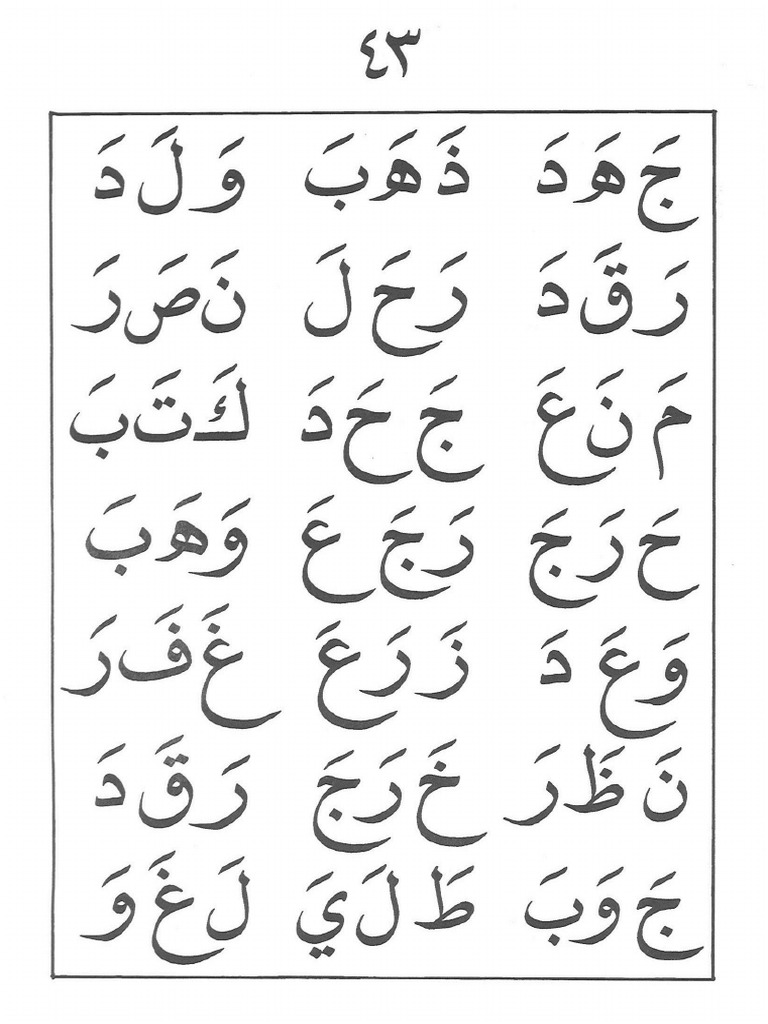 ٤٣
جَ هَ دَ ذَ هَ بَ وَ لَ دَ
رَ قَ دَ رَ حَ لَ نَ صَ رَ
مَ نَ عَ جَ حَ دَ كَ تَ بَ
حَ رَ جَ رَ جَ عَ وَ هَ بَ
وَ عَ دَ زَ رَ عَ غَ فَ رَ
نَ ظَ رَ خَ رَ جَ رَ قَ دَ
جَ وَ بَ طَ لَ يَ لَ غَ وَ